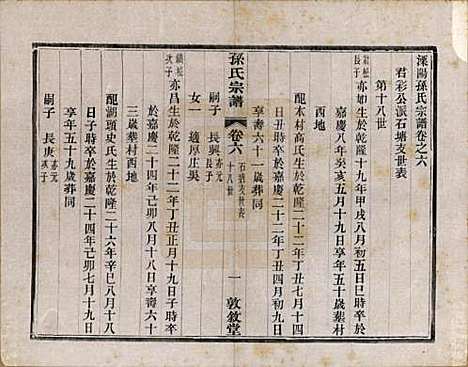 溧陽孫氏宗譜卷之六
君彩公派石塘支世表
第十八世
長子 亦如生於乾隆十九年甲戌八月初五日時卒於
嘉慶八年癸亥五月十九日享年五十歲葬村
西地
配本村高氏生於乾隆二十二年丁丑七月十四
日時卒於嘉慶二十二年丁丑四月初九日
享壽六十一歲葬同
嗣子 長興 亦元長子
女一 適厚庄吳
孫氏宗譜 卷六 石塘支世表 十八世 一 敦敘堂
次子 亦昌生於乾隆二十二年丁丑正月十九日子時卒
於嘉慶二十四年己卯八月十八日享壽六十
三歲葬村西地
配湖頭史氏生於乾隆二十六年辛巳八月十八
日時卒於嘉慶二十四年己卯七月初九日
享年五十九歲葬同
嗣子 長庚 亦元次子